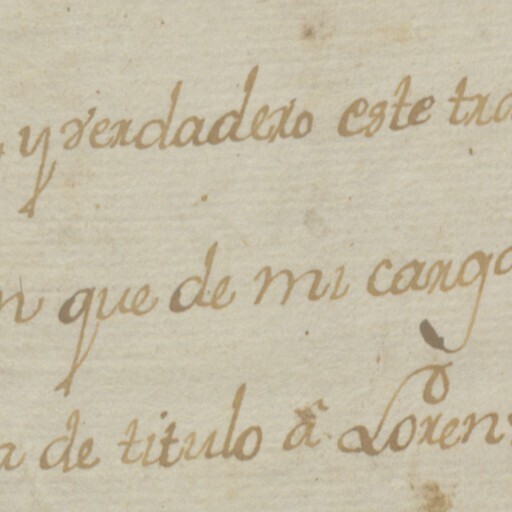 y verdadero este tra
n que de mi cargo
a de titulo â Loren